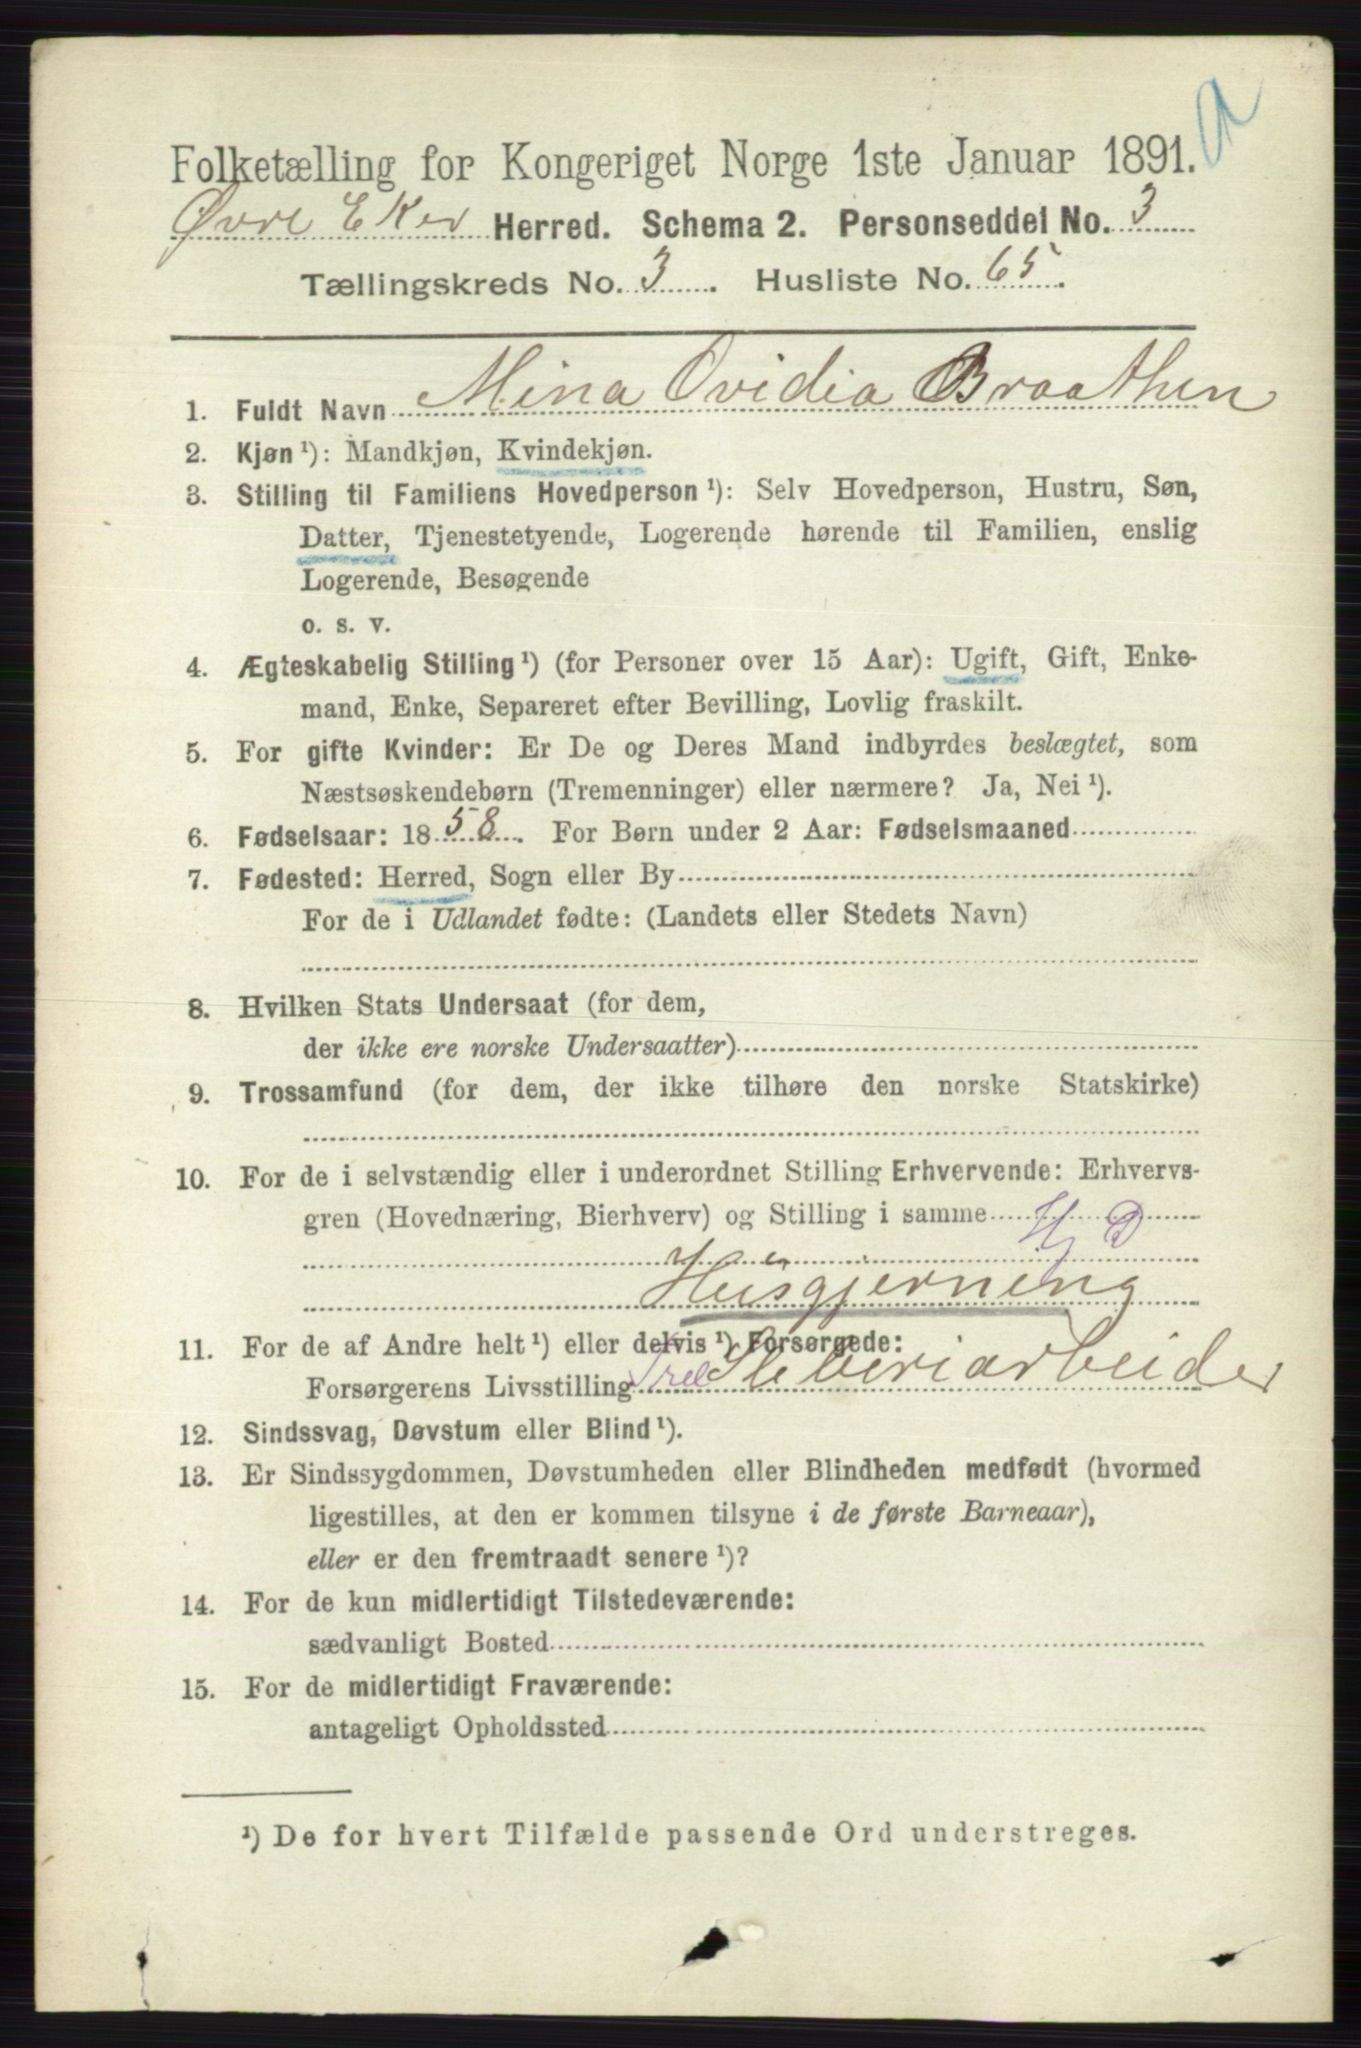 a
Folketælling for Kongeriget Norge 1ste Januar 1891.
Øvre Eker Herred. Schema 2. Personseddel No. 3
Tællingskreds No. 3. Husliste No. 65.
1. Fuldt Navn Mina Ovidia Braathen
2. Kjøn ¹): Mandkjøn, Kvindekjøn.
3. Stilling til Familiens Hovedperson ¹): Selv Hovedperson, Hustru, Søn,
Datter, Tjenestetyende, Logerende hørende til Familien, enslig
Logerende, Besøgende
o. s. v.
4. Ægteskabelig Stilling ¹) (for Personer over 15 Aar): Ugift, Gift, Enke-
mand, Enke, Separeret efter Bevilling, Lovlig fraskilt.
5. For gifte Kvinder: Er De og Deres Mand indbyrdes beslægtet, som
Næstsøskendebørn (Tremenninger) eller nærmere? Ja, Nei ¹).
6. Fødselsaar: 1858. For Børn under 2 Aar: Fødselsmaaned
7. Fødested: Herred, Sogn eller By
For de i Udlandet fødte: (Landets eller Stedets Navn)
8. Hvilken Stats Undersaat (for dem,
der ikke ere norske Undersaatter)
9. Trossamfund (for dem, der ikke tilhøre den norske Statskirke)
10. For de i selvstændig eller i underordnet Stilling Erhvervende: Erhvervs-
gren (Hovednæring, Bierhverv) og Stilling i samme Hj D
Husgjerning
11. For de af Andre helt ¹) eller delvis ¹) Forsørgede:
Forsørgerens Livsstilling Træ Sleberiarbeider
12. Sindssvag, Døvstum eller Blind ¹).
13. Er Sindssygdommen, Døvstumheden eller Blindheden medfødt (hvormed
ligestilles, at den er kommen tilsyne i de første Barneaar),
eller er den fremtraadt senere ¹)?
14. For de kun midlertidigt Tilstedeværende:
sædvanligt Bosted
15. For de midlertidigt Fraværende:
antageligt Opholdssted
¹) De for hvert Tilfælde passende Ord understreges.